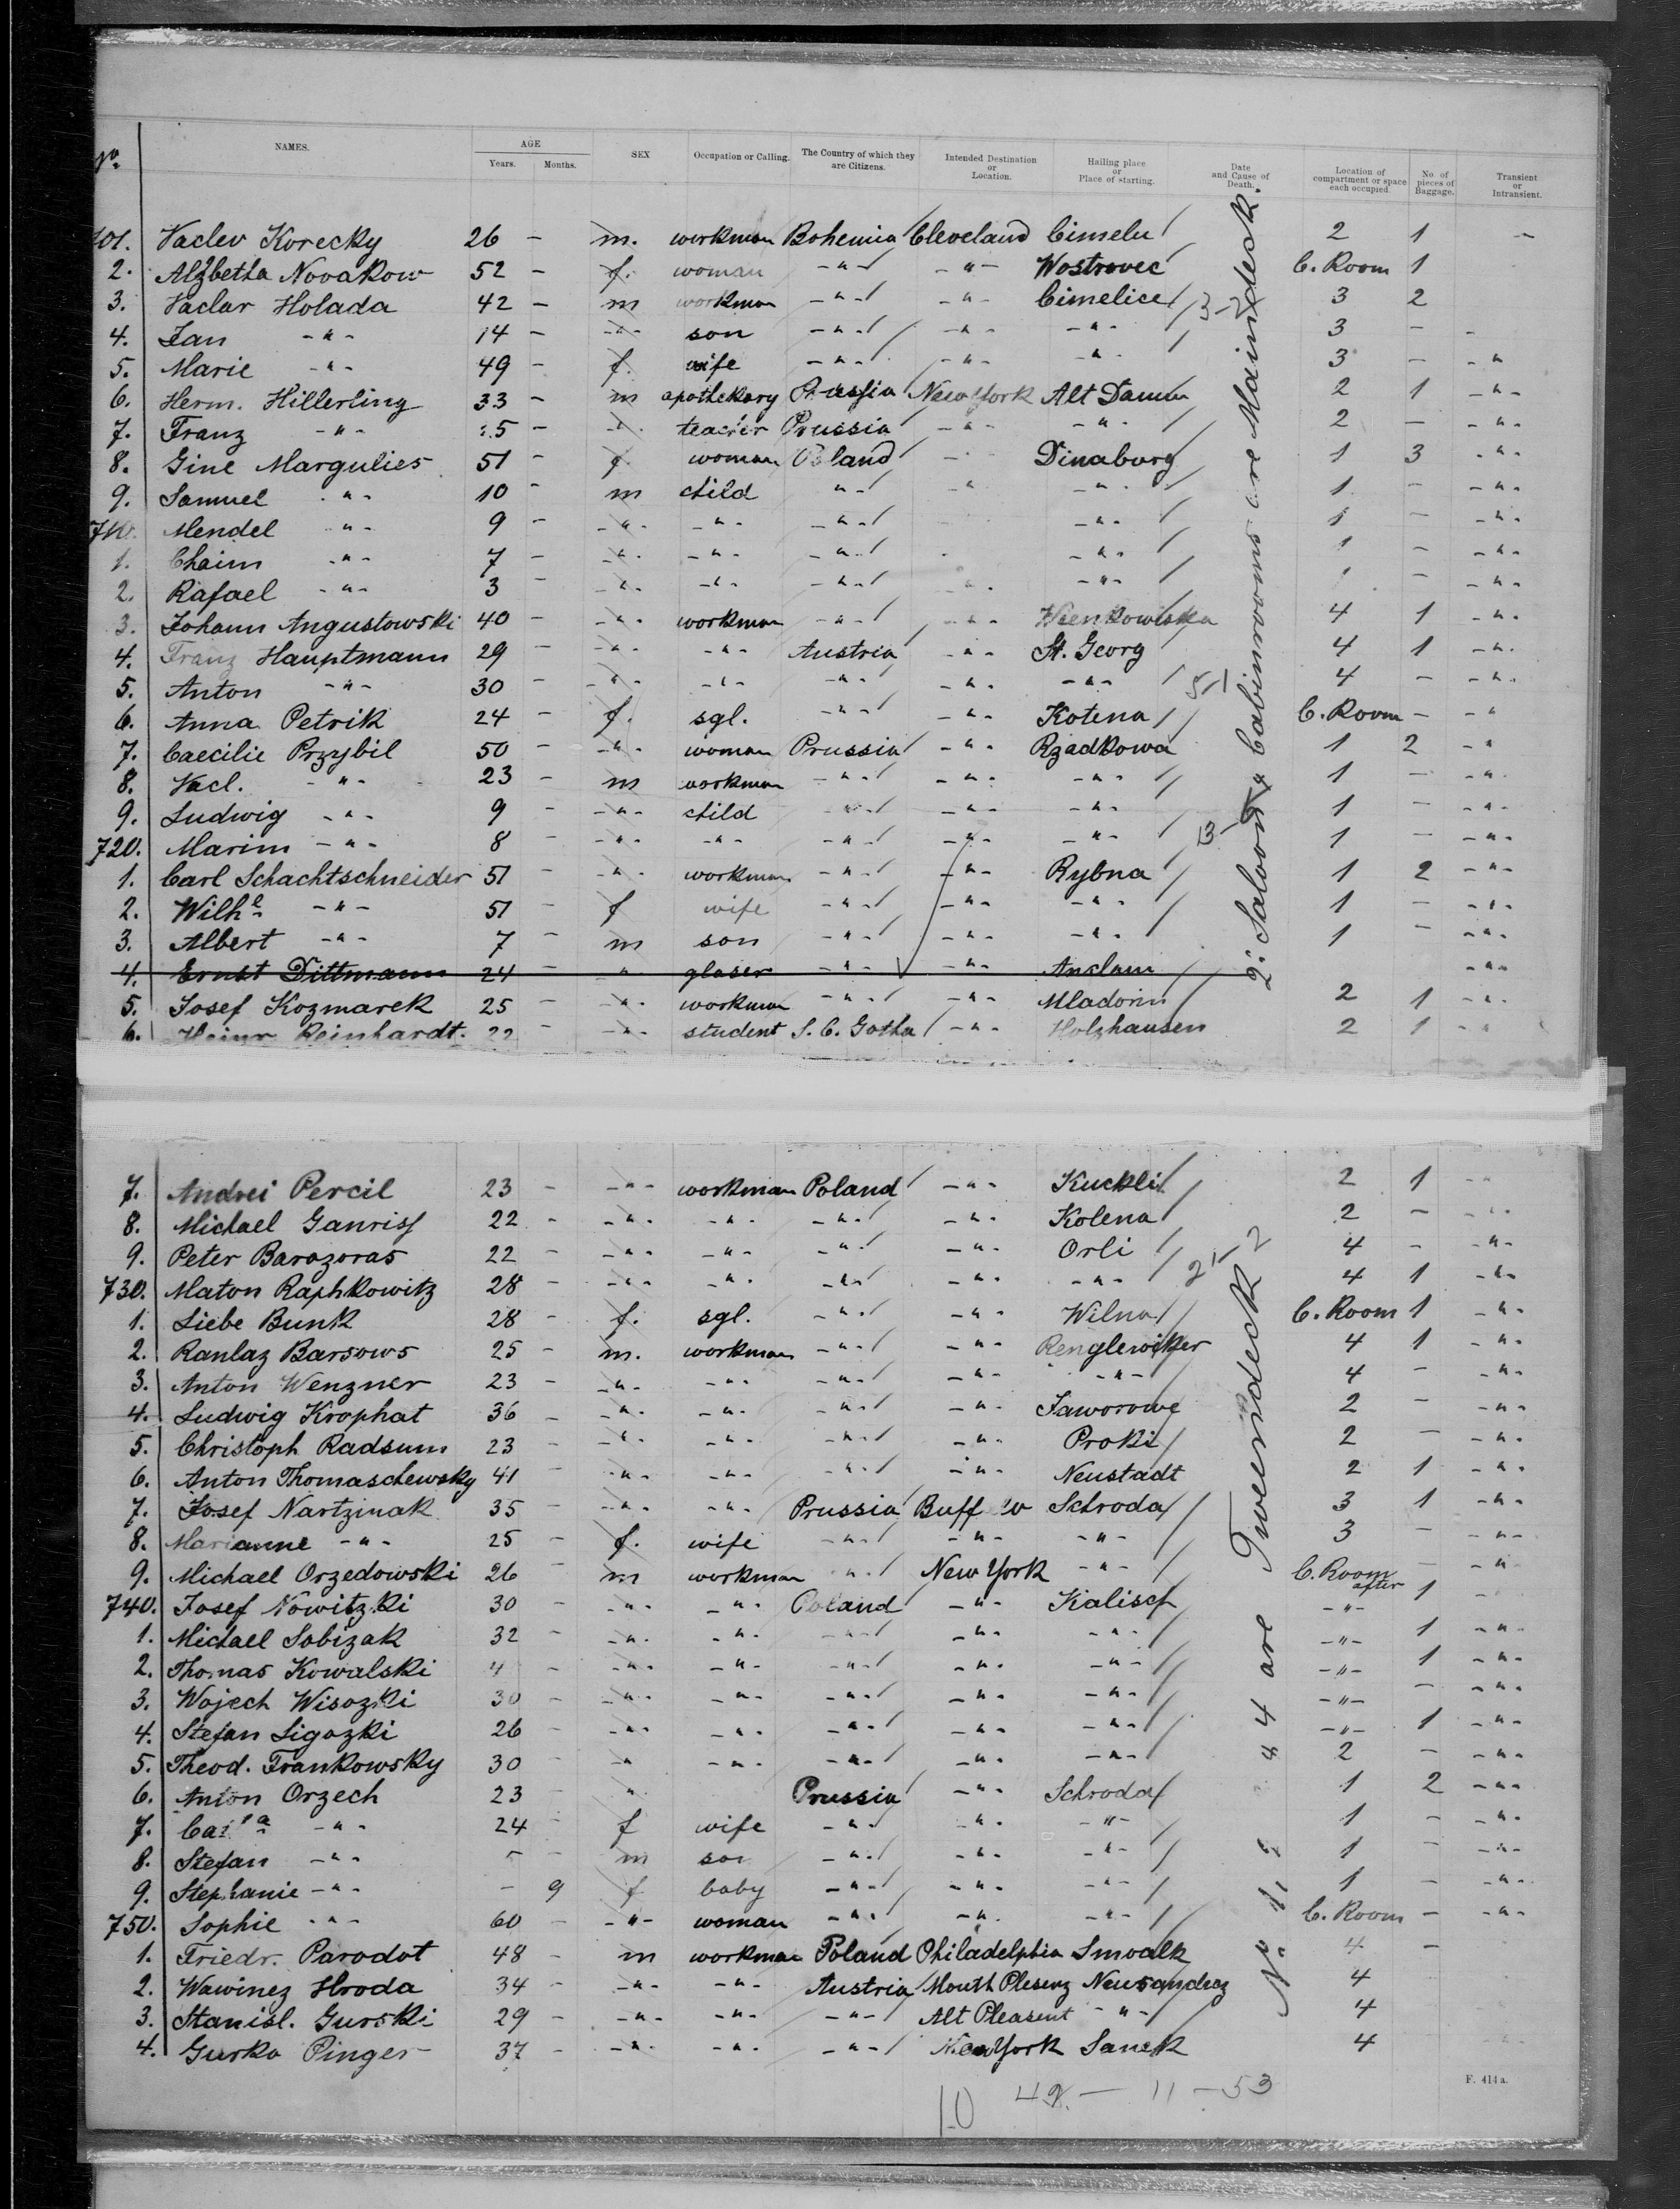 No. NAMES. AGE Years. Months. SEX Occupation or Calling. The Country of which they are Citizens. Intended Destination or Location. Hailing place or Place of starting. Date and Cause of Death. Location of compartment or space each occupied. No. of pieces of Baggage. Transient or Intransient.
701. Vaclev Korecky 26 - m. workman Bohemia Cleveland Cimelu 2 1 -
2. Alzbetha Novakow 52 - f. woman -"- -"- Wostrovec C. Room 1
3. Vaclav Holada 42 - m workman -"- -"- Cimelice 3 2
4. Jan -"- 14 - -"- son -"- -"- -"- 3 - -
5. Marie -"- 49 - f. wife -"- -"- -"- 3 - -"
6. Herm. Hillerling 33 - m apothekary Prussia New York Alt Damm 2 1 -"-
7. Franz -"- 5 - -"- teacher Prussia -"- -"- 2 - -"-
8. Gine Margulies 51 - f. woman Poland - Dinaburg 1 3 -"-
9. Samuel -"- 10 - m child -"- -"- -"- 1 - -"-
710. Mendel -"- 9 - -"- -"- -"- -"- 1 - -"-
1. Chaim -"- 7 - -"- -"- -"- -"- 1 - -"-
2. Rafael -"- 3 - -"- -"- -"- -"- 1 - -"-
3. Johann Angustowski 40 - -"- workman -"- -"- 4 1 -"-
4. Franz Hauptmann 29 - -"- -"- Austria -"- St. Georg 4 1 -"-
5. Anton -"- 30 - -"- -"- -"- -"- -"- 4 - -"-
6. Anna Petrik 24 - f. sgl. -"- -"- Kotena C. Room - -"
7. Caecilie Przybil 50 - -"- woman Prussia -"- Rzadkowa 1 2 -"
8. Vacl. -"- 23 - m workman -"- -"- -"- 1 - -"-
9. Ludwig -"- 9 - -"- child -"- -"- -"- 1 - -"-
720. Marim -"- 8 - -"- -"- -"- -"- -"- 1 - -"-
1. Carl Schachtschneider 51 - -"- workman -"- -"- Rybna 1 2 -"-
2. Wilhe -"- 51 - f wife -"- -"- -"- 1 - -"-
3. Albert -"- 7 - m son -"- -"- -"- 1 - -"-
4. Ernst Dittmann 24 - -"- glaser -"- -"- Anclam -"-
5. Josef Kozmarek 25 - -"- workman -"- -"- Mladorin 2 1 -"-
6. Heinr Reinhardt. 22 - -"- student S. C. Gotha -"- Holzhausen 2 1 -"
2: Saloon & Cabinrooms are Maindeck.
7. Andrei Percil 23 - -"- workman Poland -"- Kuckli 2 1 -"-
8. Michael Ganriss 22 - -"- -"- -"- -"- Kolena 2 - -"-
9. Peter Barozoras 22 - -"- -"- -"- -"- Orli 4 - -"-
730. Maton Raphkowitz 28 - -"- -"- -"- -"- -"- 4 1 -"-
1. Liebe Bunk 28 - f. sgl. -"- -"- Wilna C. Room 1 -"-
2. Ranlaz Barsows 25 - m. workman -"- -"- Renglewi 4 1 -"-
3. Anton Wenzner 23 - -"- -"- -"- -"- -"- 4 - -"-
4. Ludwig Krophat 36 - -"- -"- -"- -"- Jaworowe 2 - -"-
5. Christoph Radsum 23 - -"- -"- -"- -"- Proki 2 - -"-
6. Anton Thomaschewsky 41 - -"- -"- -"- -"- Neustadt 2 1 -"-
7. Josef Nartzinak 35 - -"- -"- Prussia Buff lo Schroda 3 1 -"-
8. Marianne -"- 25 - f. wife -"- -"- -"- 3 - -"-
9. Michael Orzedowski 26 - m workman -"- New York -"- C. Room after - -"
740. Josef Nowitzki 30 - -"- -"- Poland -"- Kalisch -"- 1 -
1. Michael Sobizak 32 - -"- -"- -"- -"- -"- -"- 1 -"-
2. Thomas Kowalski 4 - -"- -"- -"- -"- -"- -"- 1 -"-
3. Wojech Wisozki 30 - -"- -"- -"- -"- -"- -"- - -"-
4. Stefan Ligozki 26 - -"- -"- -"- -"- -"- -"- 1 -"-
5. Theod. Frankowsky 30 - -"- -"- -"- -"- -"- 2 - -"-
6. Anton Orzech 23 - -"- Prussia -"- Schroda 1 2 -"-
7. -"- 24 - f wife -"- -"- -"- 1 - -"-
8. Stefan -"- 5 - m son -"- -"- -"- 1 - -"-
9. Stephanie -"- - 9 f baby -"- -"- -"- 1 - -"-
750. Sophie -"- 60 - -"- woman -"- -"- -"- C. Room - -"-
1. Friedr. Parodot 48 - m workman Poland Philadelphia Smoalk 4 -
2. Wawinez Hroda 34 - -"- -"- Austria Mouth Plesenz Neusandez 4
3. Stanisl. Gurski 29 - -"- -"- -"- Alt Pleasent -"- 4
4. Gurko Pinger 37 - -"- -"- -"- New York Sanek 4
No. 1, 2 & 4 are Tweendeck
10 42 - 11 - 53
F. 414a.